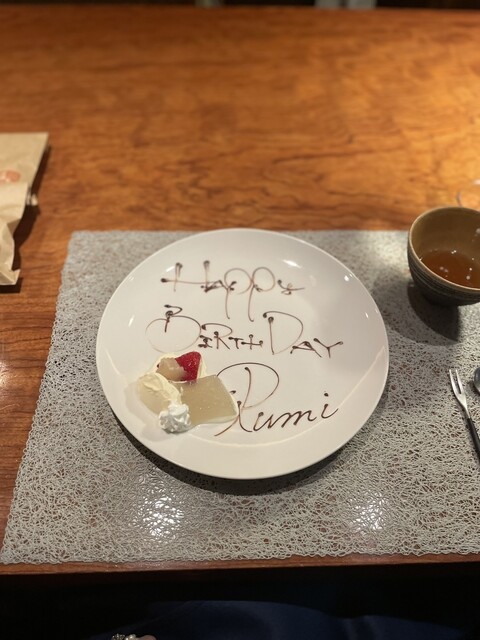 Happy
BIRTHDAY
Rumi